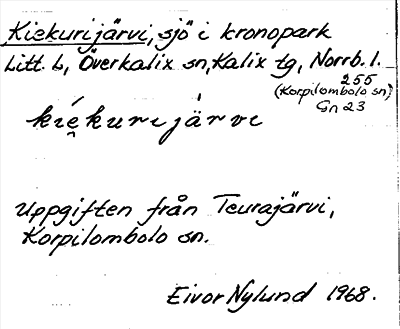 Kiekurijärvi, sjö i kronopark
Litt. L, Överkalix sn, Kalix tg, Norrb. l.
255
(Korpilombolo sn)
Gn 23
kíe̯kurijä̀rvi
Uppgiften från Teurajärvi,
Korpilombolo sn.
Eivor Nylund 1968.